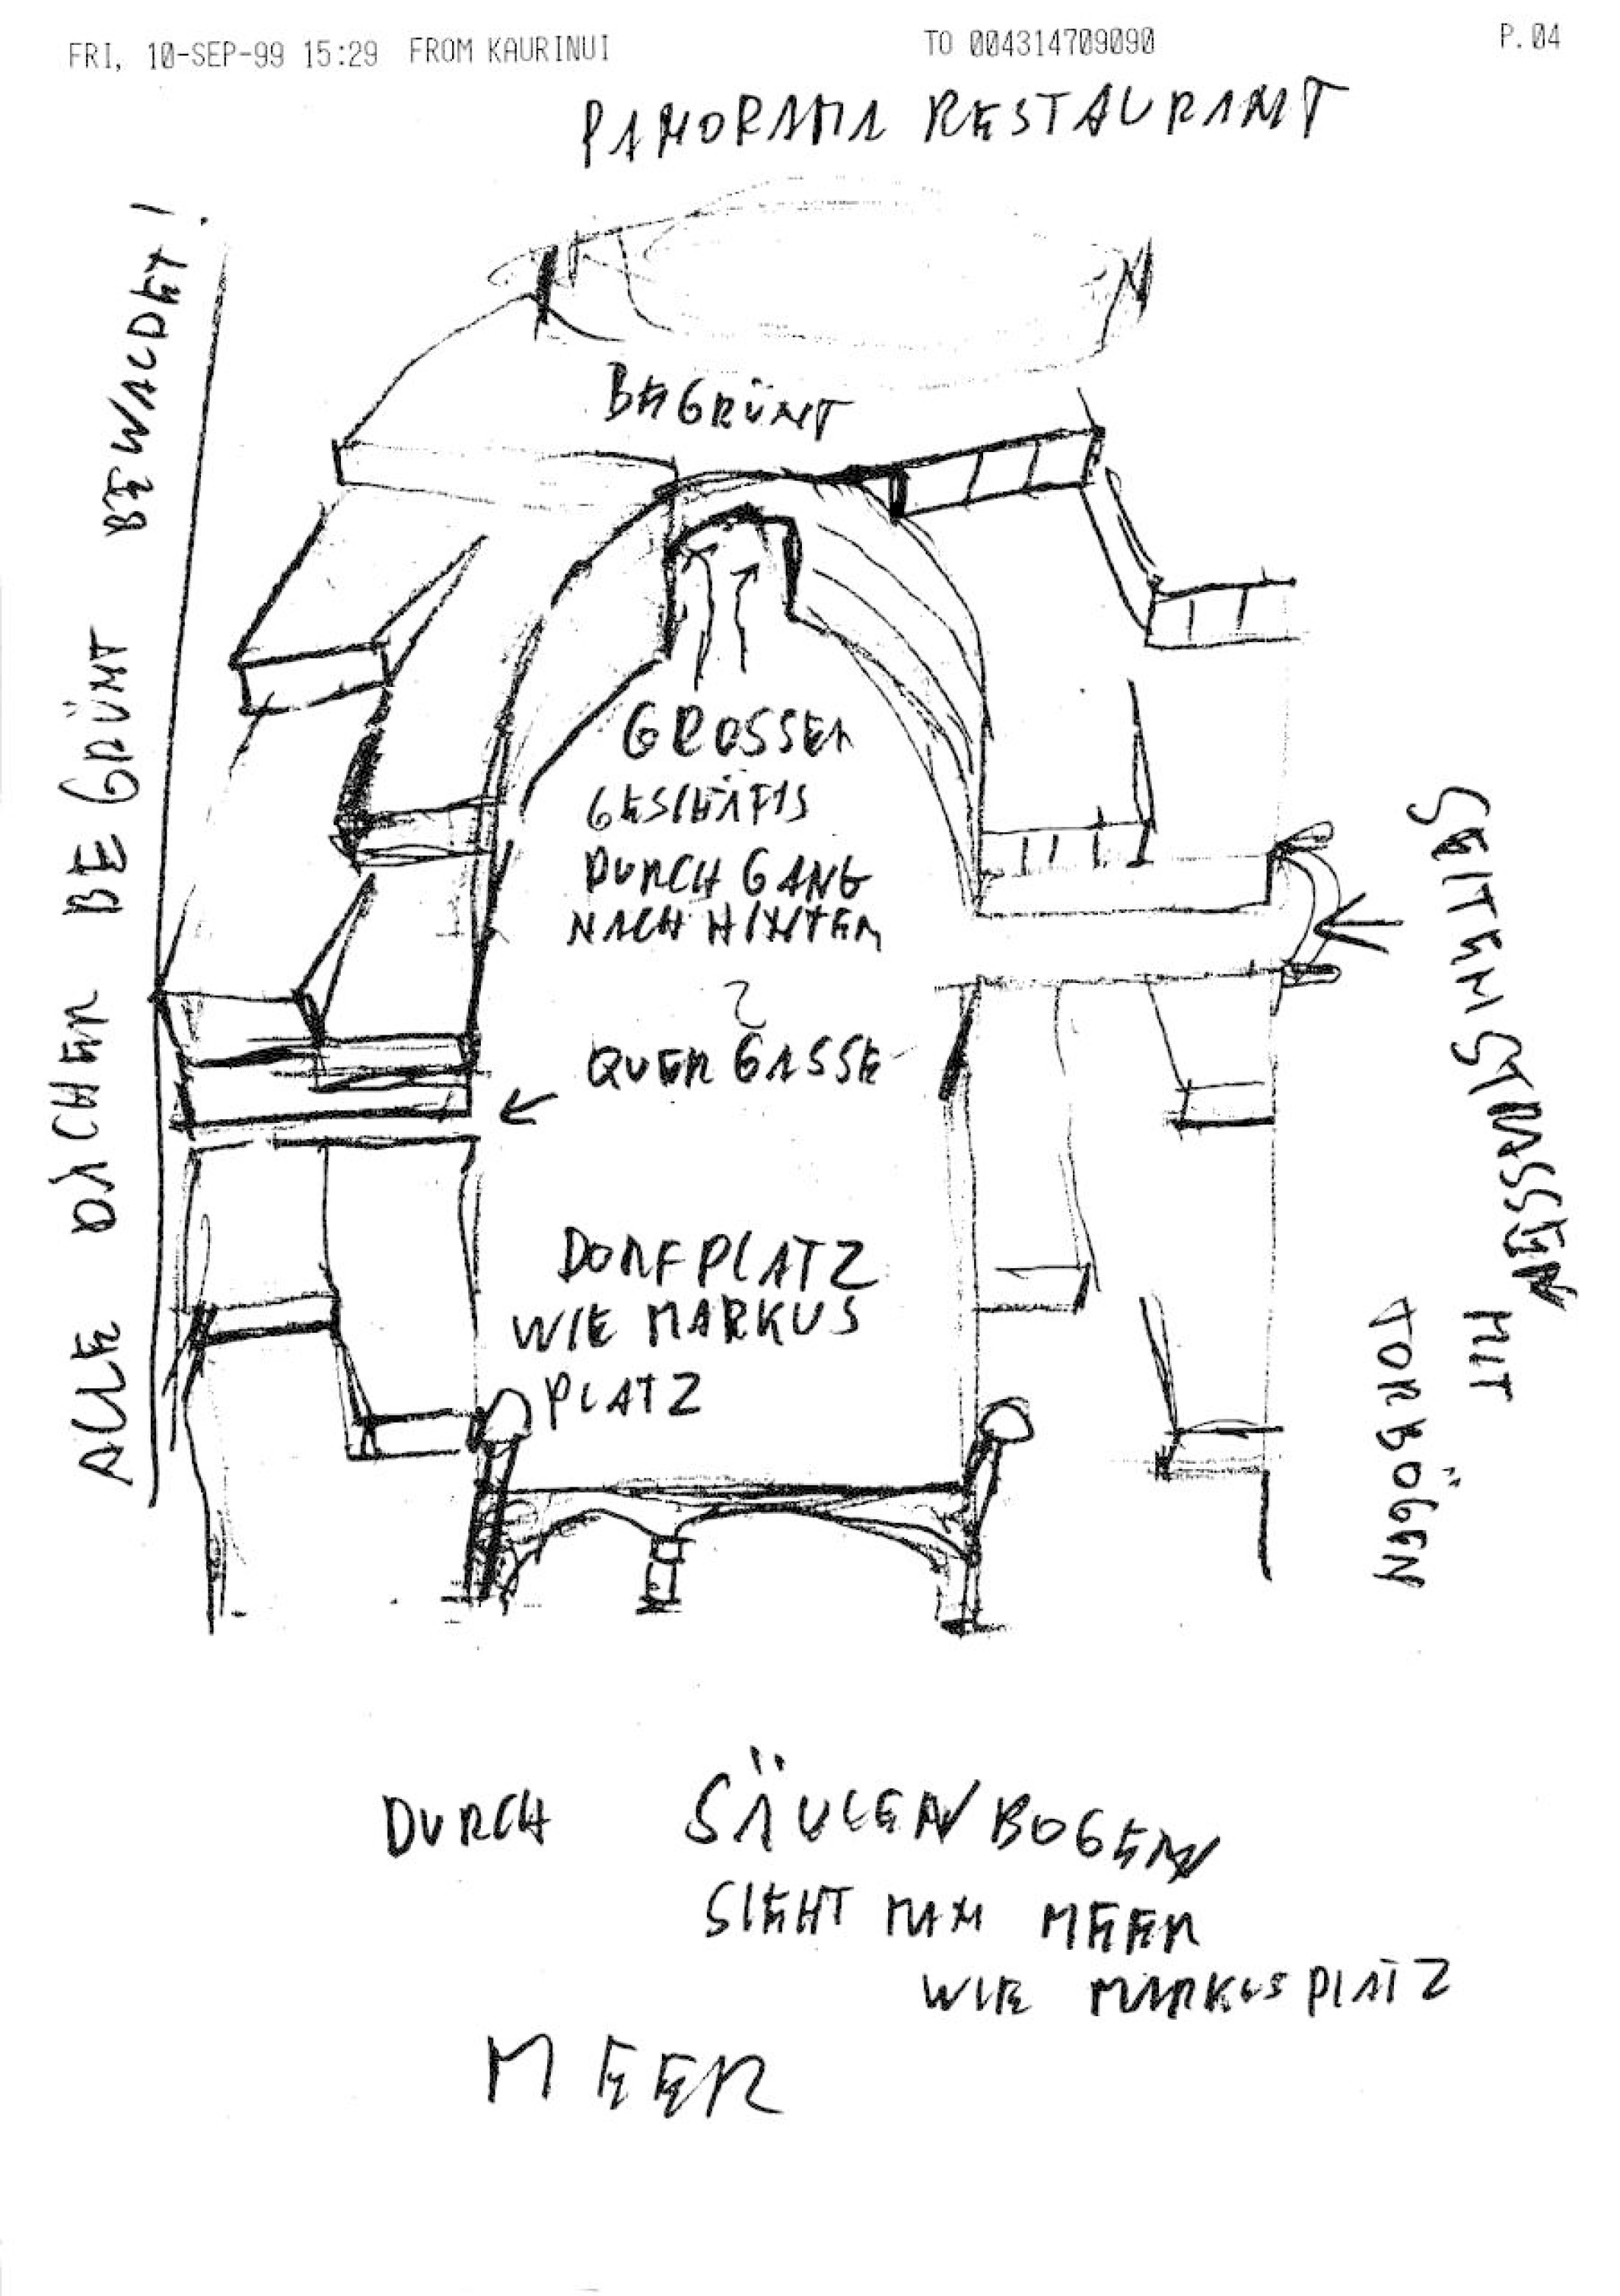 FRI, 10-SEP-99 15:29 FROM KAURINUI TO 004314709090 P.04
PANORAMA RESTAURANT
ALLE DÄCHER BEGRÜNT BEWALDET!
BEGRÜNT
GROSSER
GESCHÄFTS
DURCHGANG
NACH HINTEN
QUERGASSE
DORFPLATZ
WIE MARKUS
PLATZ
SEITENSTRASSEN
MIT
TORBÖGEN
DURCH SÄULENBOGEN
SIEHT MAN MEER
WIE MARKUSPLATZ
MEER